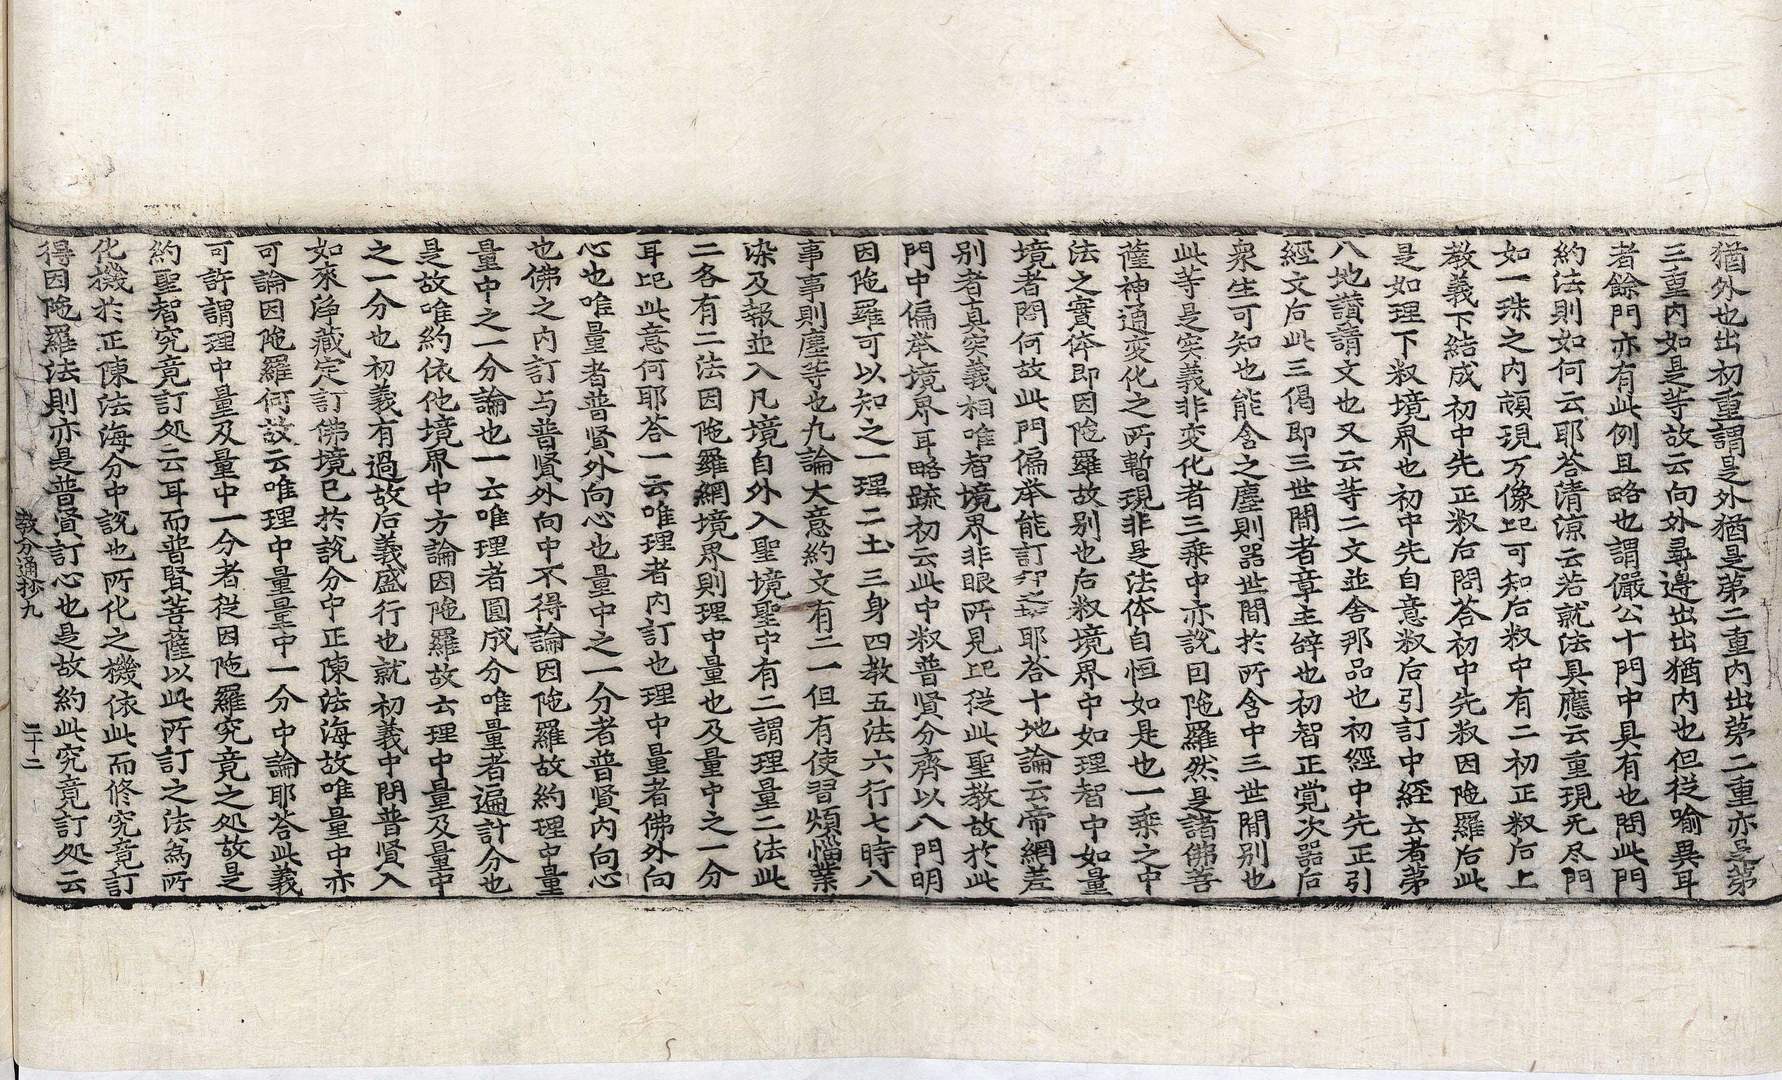 猶外也出初重謂是外猶是第二重內出第二重亦是第
三重內如是等故云向外尋邊出出猶內也但從喻異耳
者餘門亦有此例且略也謂儼公十門中具有也問此門
約法則如何云耶荅清涼云若就法具應云重現无尽門
如一珠之內頓現万像㠯可知后㕘中有二初正㕘后上
教義下結成初中先正㕘后問荅初中先㕘因陁羅后此
是如理下㕘境界也初中先自意㕘后引訂中經云者第
八地讃請文也又云等二文並舍那品也初經中先正引
經文后此三偈即三世間者章主辞也初智正覺次器后
衆生可知也能含之塵則器世間於所含中三世間別也
此等是实義非変化者三乘中亦說因陁羅然是諸佛菩
薩神通変化之所暫現非是法体自恒如是也一乘之中
法之實体即因陁羅故別也后㕘境界中如理智中如量
境者問何故此門偏举能訂之耶荅十地論云帝網差
別者真実義相唯智境界非眼所見㠯從此聖教故於此
門中偏举境界耳略䟽初云此中㕘普賢分齊以八門明
因陁羅可以知之一理二土三身四教五法六行七時八
事事則塵等也九論大意約文有二一但有使習煩惱業
染及報並入凡境自外入聖境聖中有二謂理量二法此
二各有二法因陁羅網境界則理中量也及量中之一分
耳㠯此意何耶荅一云唯理者內訂也理中量者佛外向
心也唯量者普賢外向心也量中之一分者普賢內向心
也佛之內訂与普賢外向中不得論因陁羅故約理中量
量中之一分論也一云唯理者圓成分唯量者遍計分也
是故唯約依他境界中方論因陁羅故云理中量及量中
之一分也初義有過故后義盛行也就初義中問普賢入
如來淨藏㝎訂佛境已於說分中正陳法海故唯量中亦
可論因陁羅何故云唯理中量量中一分中論耶荅此義
可許謂理中量及量中一分者從因陁羅究竟之処故是
約聖智究竟訂処云耳而普賢菩薩以此所訂之法為所
化機於正陳法海分中說也所化之機依此而修究竟訂
得因陁羅法則亦是普賢訂心也是故約此究竟訂処云
教分通抄九　二十二